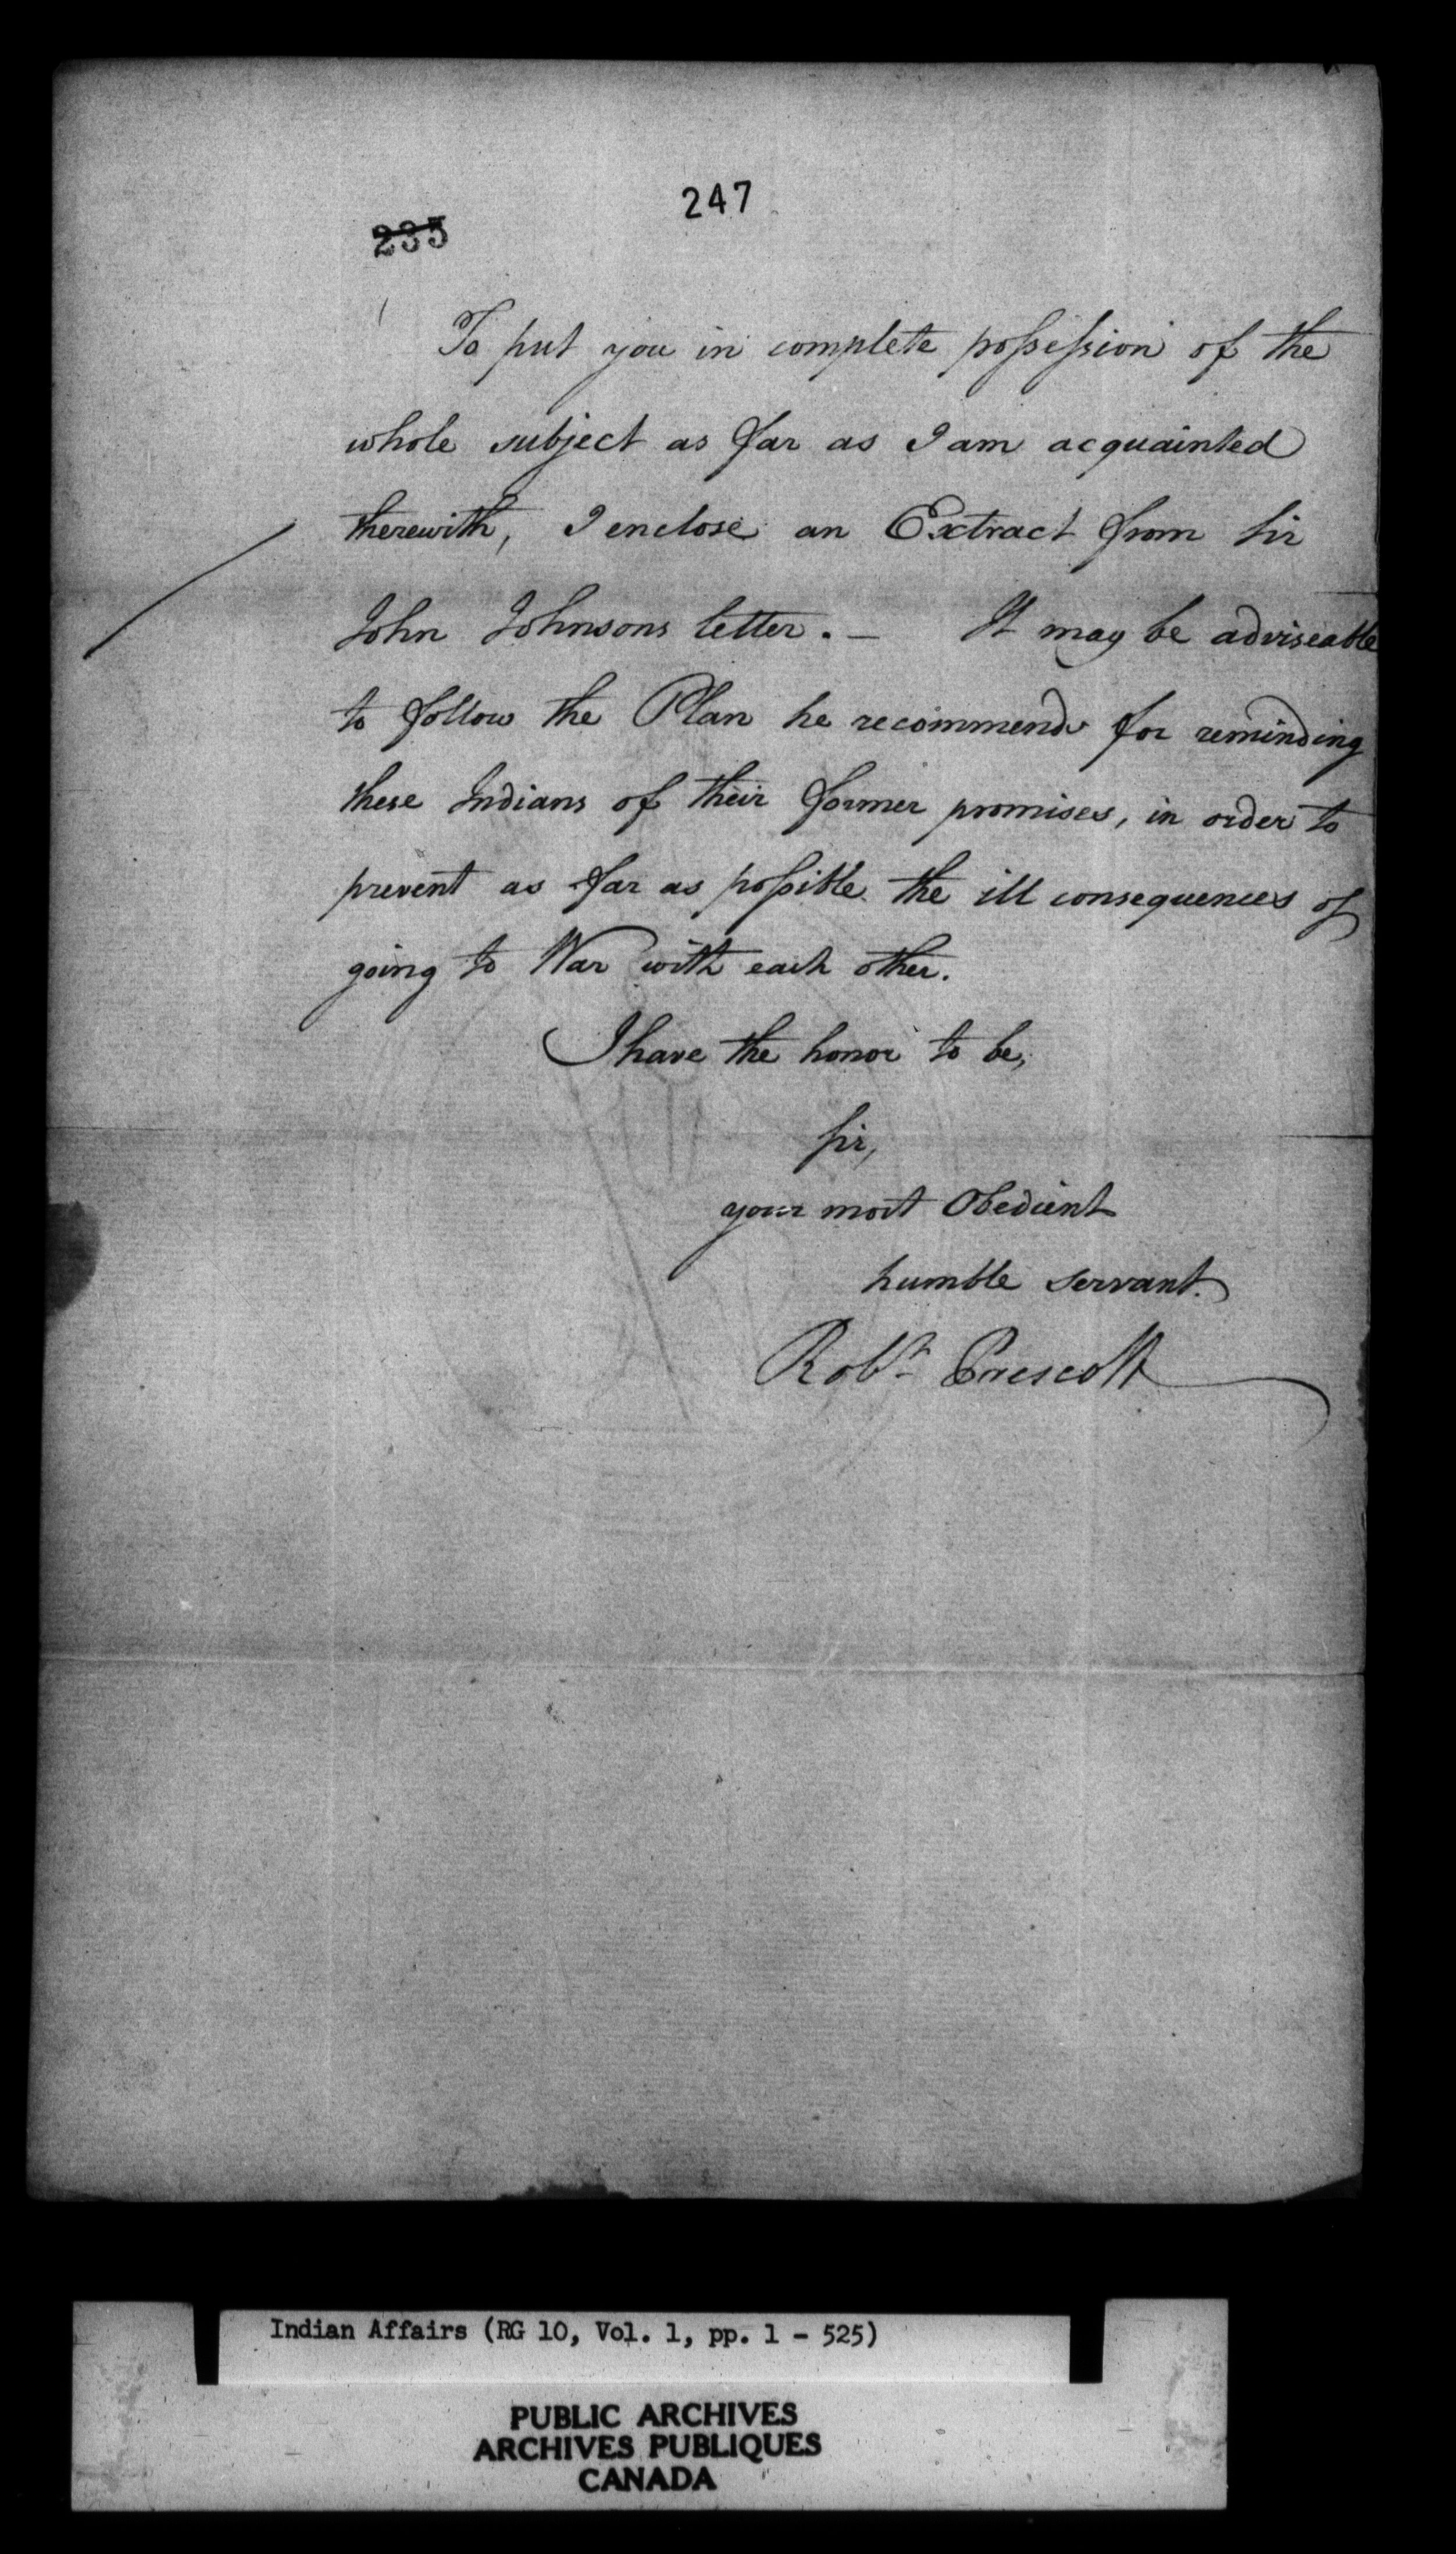 247
235
To put you in complete possession of the
whole subject as far as I am acquainted
therewith, I enclose an Extract from Sir
John Johnsons letter. — It may be adviseable
to follow the Plan he recommends for reminding
these Indians of their former promises, in order to
prevent as far as possible the ill consequences of
going to War with each other.
I have the honor to be,
Sir,
your most Obedient
humble servant.
Robt Prescott
Indian Affairs (RG 10, Vol. 1, pp. 1 - 525)
PUBLIC ARCHIVES
ARCHIVES PUBLIQUES
CANADA